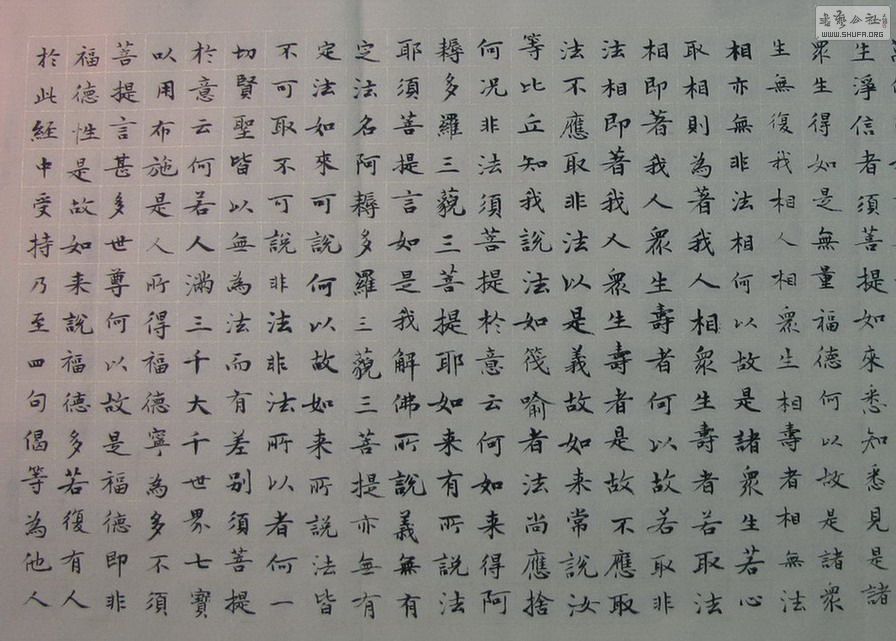 生淨信者須菩提如來悉知悉見是諸
眾生得如是無量福德何以故是諸眾
生無復我相人相眾生相壽者相無法
相亦無非法相何以故是諸眾生若心
取相則為著我人相眾生壽者若取法
相即著我人眾生壽者何以故若取非
法相即著我人眾生壽者是故不應取
法不應取非法以是義故如来常說汝
等比丘知我說法如筏喻者法尚應捨
何況非法須菩提於意云何如来得阿
耨多羅三藐三菩提耶如来有所說法
耶須菩提言如是我解佛所說義無有
定法名阿耨多羅三藐三菩提亦無有
定法如來可說何以故如来所說法皆
不可取不可說非法非法所以者何一
切賢聖皆以無為法而有差別須菩提
於意云何若人滿三千大千世界七寶
以用布施是人所得福德寧為多不須
菩提言甚多世尊何以故是福德即非
福德性是故如来說福德多若復有人
於此經中受持乃至四句偈等為他人
書藝公社
WWW.SHUFA.ORG